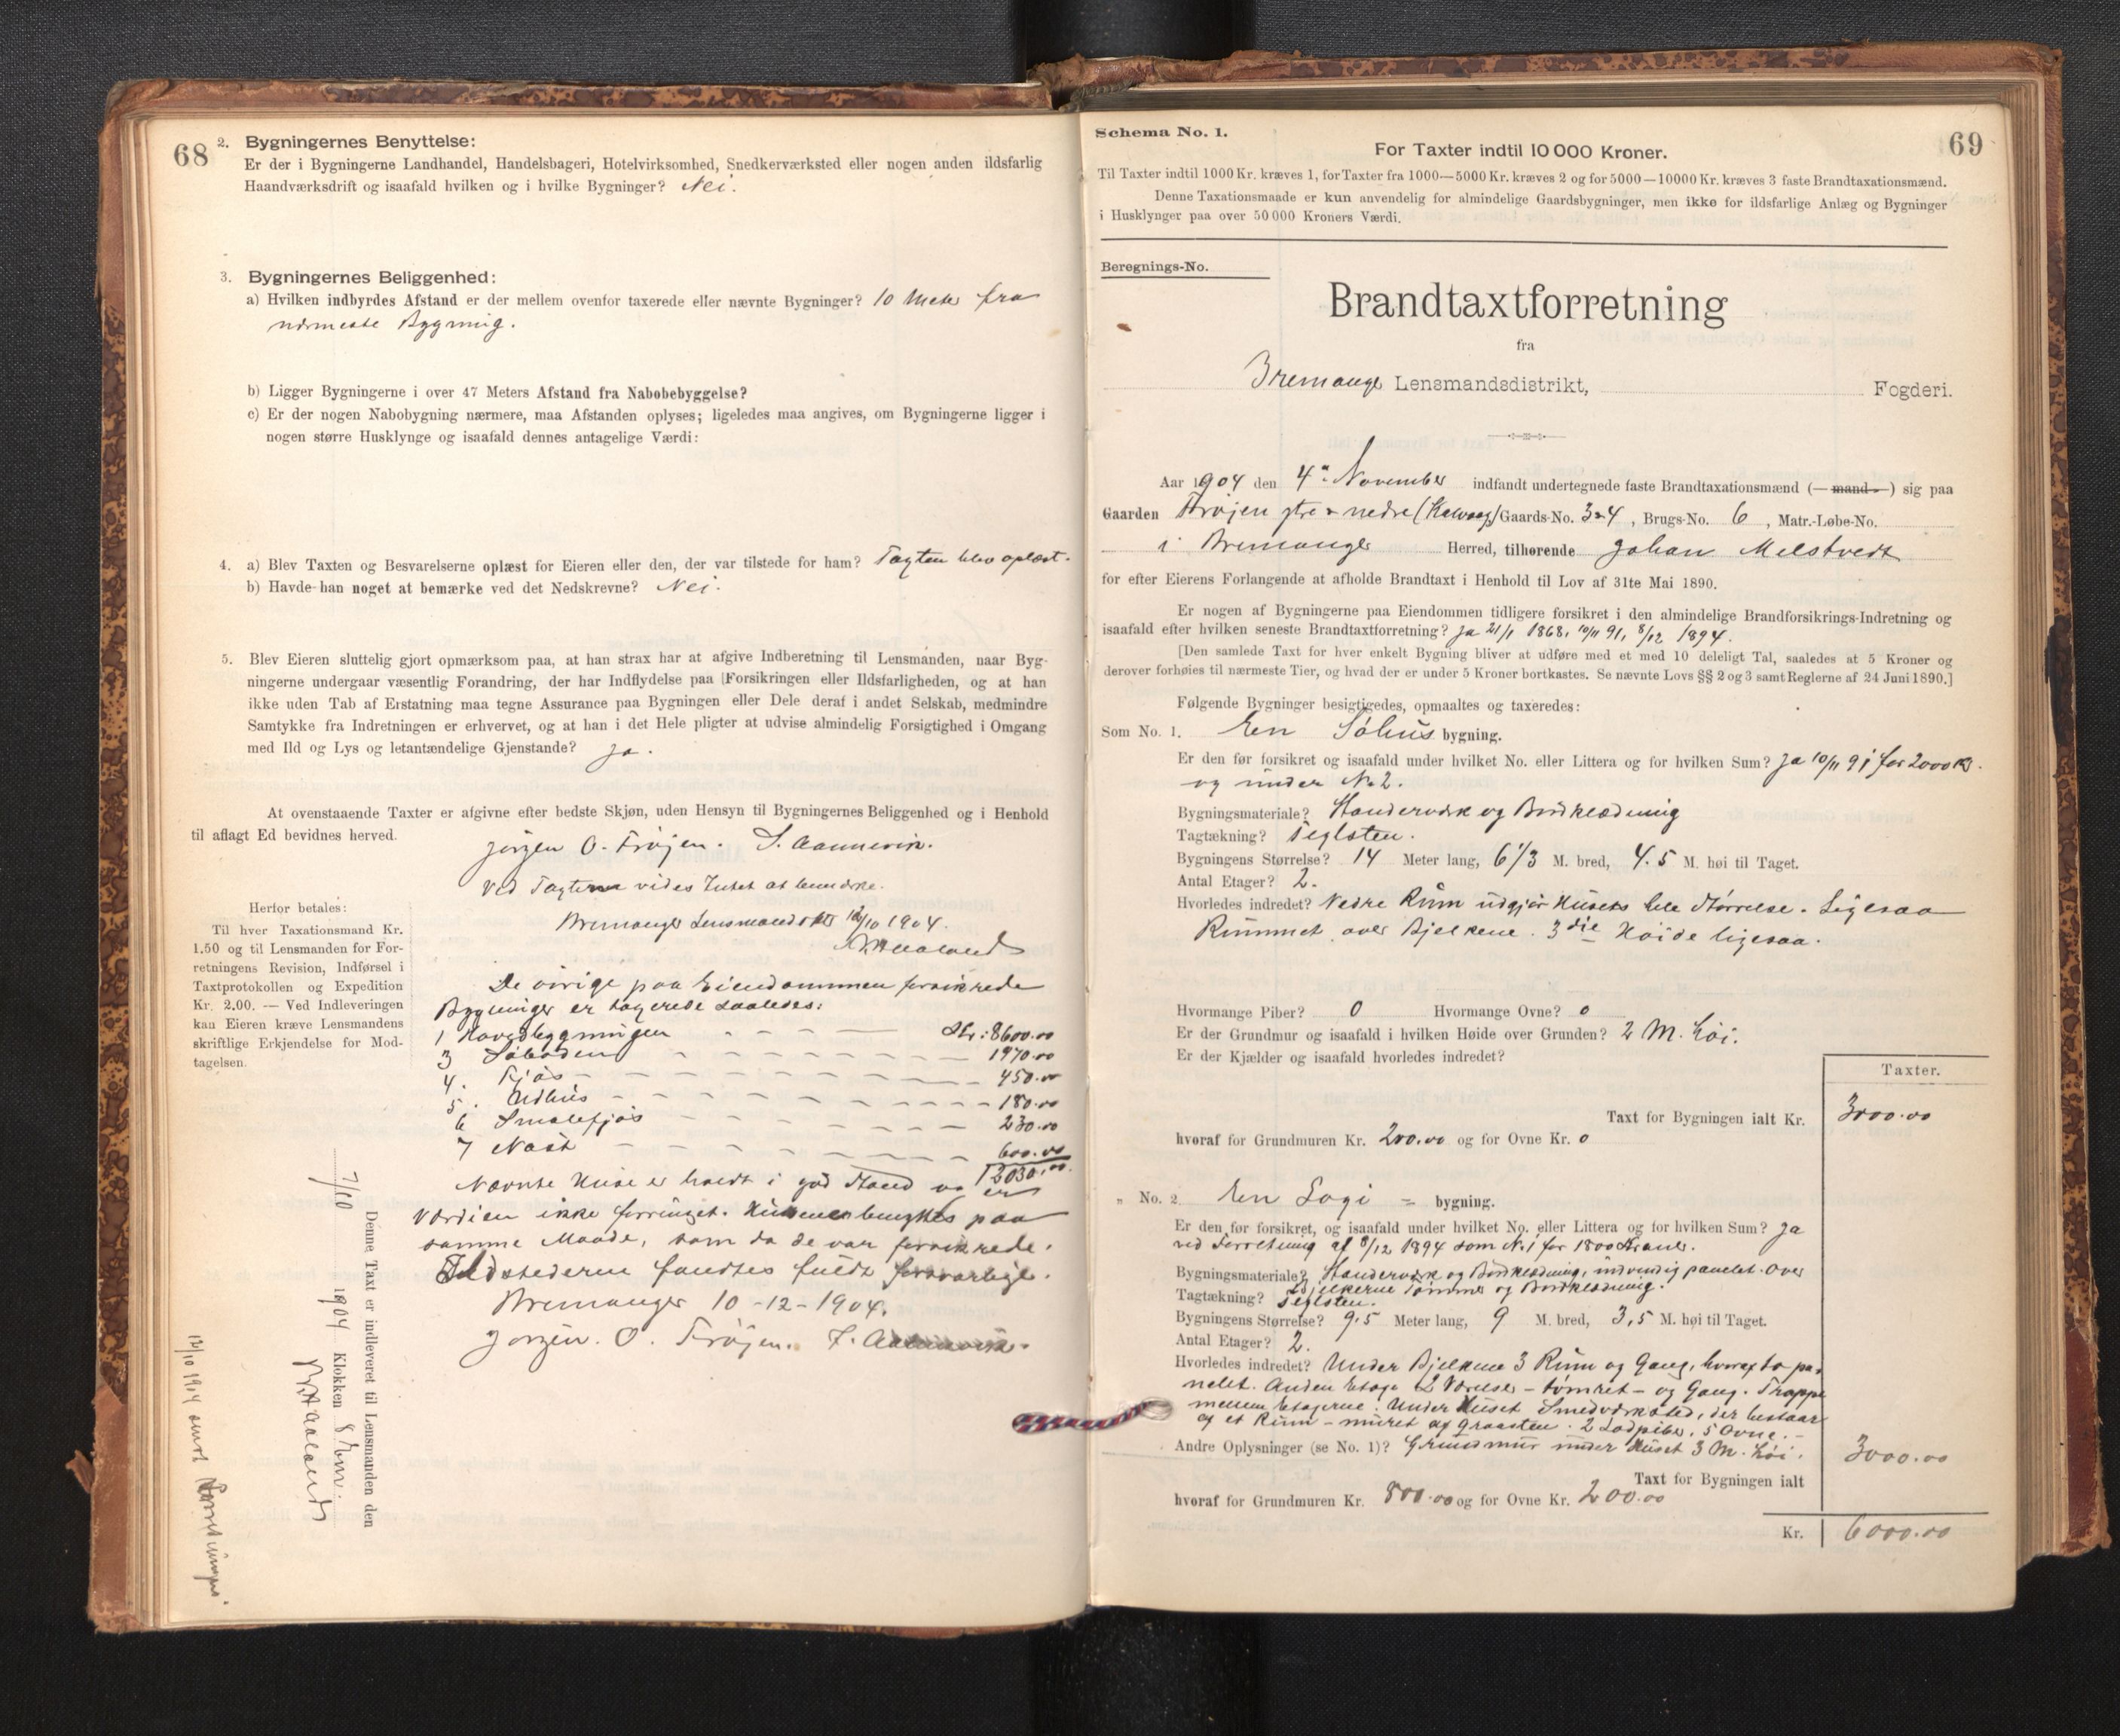 68
2. Bygningernes Benyttelse:
Er der i Bygningerne Landhandel, Handelsbageri, Hotelvirksomhed, Snedkerværksted eller nogen anden ildsfarlig
Haandværksdrift og isaafald hvilken og i hvilke Bygninger? Nei.
3. Bygningernes Beliggenhed:
a) Hvilken indbyrdes Afstand er der mellem ovenfor taxerede eller nævnte Bygninger? 10 Meter fra
nærmeste Bygning.
b) Ligger Bygningerne i over 47 Meters Afstand fra Nabobebyggelse?
c) Er der nogen Nabobygning nærmere, maa Afstanden oplyses; ligeledes maa angives, om Bygningerne ligger i
nogen større Husklynge og isaafald dennes antagelige Værdi:
4. a) Blev Taxten og Besvarelserne oplæst for Eieren eller den, der var tilstede for ham? Taxten blev oplæst.
b) Havde han noget at bemærke ved det Nedskrevne? Nei.
5. Blev Eieren sluttelig gjort opmærksom paa, at han strax har at afgive Indberetning til Lensmanden, naar Byg-
ningerne undergaar væsentlig Forandring, der har Indflydelse paa Forsikringen eller Ildsfarligheden, og at han
ikke uden Tab af Erstatning maa tegne Assurance paa Bygningen eller Dele deraf i andet Selskab, medmindre
Samtykke fra Indretningen er erhvervet, og at han i det Hele pligter at udvise almindelig Forsigtighed i Omgang
med Ild og Lys og letantændelige Gjenstande? Ja.
At ovenstaaende Taxter er afgivne efter bedste Skjøn, uden Hensyn til Bygningernes Beliggenhed og i Henhold
til aflagt Ed bevidnes herved.
Jørgen O. Frøjen. S. Aannevik.
Ved Taxterne vides Intet at bemærke.
Bremanger Lensmand 12/10 1904.
Herfor betales:
Til hver Taxationsmand Kr.
1.50 og til Lensmanden for For-
retningens Revision, Indførsel i
Taxtprotokollen og Expedition
Kr. 2.00. — Ved Indleveringen
kan Eieren kræve Lensmandens
skriftlige Erkjendelse for Mod-
tagelsen.
De øvrige paa Eiendommen forsikrede
Bygninger er taxerede saaledes:
1 Hovedbygningen Kr: 8600.00
3 Søboden 1970.00
4. Fjøs 450.00
5. Eldhus 180.00
6 Smalefjøs 230.00
7 Nøst 600.00
12030.00
Nævnte Huse er holdt i god Stand og er
Værdien ikke forringet. Husene benyttes paa
samme Maade, som da de var forsikrede.
Ildstederne fandtes fuldt forsvarlige.
Bremanger 10-12-1904.
Jørgen. O. Frøjen. S. Aannevik.
Denne Taxt er indleveret til Lensmanden den
7/10 1904 Klokken 8 Em.
69
Schema No. 1.
For Taxter indtil 10 000 Kroner.
Til Taxter indtil 1000 Kr. kræves 1, for Taxter fra 1000—5000 Kr. kræves 2 og for 5000—10000 Kr. kræves 3 faste Brandtaxationsmænd.
Denne Taxationsmaade er kun anvendelig for almindelige Gaardsbygninger, men ikke for ildsfarlige Anlæg og Bygninger
i Husklynger paa over 50 000 Kroners Værdi.
Beregnings-No.
Brandtaxtforretning
fra
Bremanger Lensmandsdistrikt, Fogderi.
Aar 1904 den 4de November indfandt undertegnede faste Brandtaxationsmænd (—mand—) sig paa
Gaarden Frøjen ytre & nedre (Kalvaag) Gaards-No. 3 & 4, Brugs-No. 6, Matr.-Løbe-No.
i Bremanger Herred, tilhørende Johan Melstvedt
for efter Eierens Forlangende at afholde Brandtaxt i Henhold til Lov af 31te Mai 1890.
Er nogen af Bygningerne paa Eiendommen tidligere forsikret i den almindelige Brandforsikrings-Indretning og
isaafald efter hvilken seneste Brandtaxtforretning? Ja 21/1 1868, 10/11 91, 8/12 1894.
[Den samlede Taxt for hver enkelt Bygning bliver at udføre med et med 10 deleligt Tal, saaledes at 5 Kroner og
derover forhøies til nærmeste Tier, og hvad der er under 5 Kroner bortkastes. Se nævnte Lovs §§ 2 og 3 samt Reglerne af 24 Juni 1890.]
Følgende Bygninger besigtigedes, opmaaltes og taxeredes:
Som No. 1. En Søhus bygning.
Er den før forsikret og isaafald under hvilket No. eller Littera og for hvilken Sum? Ja 10/11 91 for 2000 Kr.
og under No 2.
Bygningsmateriale? Standerværk og Bordklædning
Tagtækning? Teglsten.
Bygningens Størrelse? 14 Meter lang, 6 1/3 M. bred, 4.5 M. høi til Taget.
Antal Etager? 2.
Hvorledes indredet? Nedre Rum udgjør Husets hele Størrelse. Ligesaa
Rummet over Bjelkene. 3die Høide ligesaa.
Hvormange Piber? 0 Hvormange Ovne? 0
Er der Grundmur og isaafald i hvilken Høide over Grunden? 2 M. høi.
Er der Kjælder og isaafald hvorledes indredet?
Taxter.
Taxt for Bygningen ialt Kr. 3000.00
hvoraf for Grundmuren Kr. 200.00 og for Ovne Kr. 0
" No. 2. En Logi = bygning.
Er den før forsikret, og isaafald under hvilket No. eller Littera og for hvilken Sum? Ja
ved Forretning af 8/12 1894 som No. 1 for 1800 Kroner.
Bygningsmateriale? Standerværk og Bordklædning, indvendig panelet. Over
Bjelkerne Tømmer og Bordklædning.
Tagtækning? Teglsten.
Bygningens Størrelse? 9.5 Meter lang, 9 M. bred, 3,5 M. høi til Taget.
Antal Etager? 2.
Hvorledes indredet? Under Bjelkene 3 Rum og Gang, hvoraf to pa-
nelet. Anden Etage 2 Værelser - tømret - og Gang. Trappe
mellem Etagerne. Under Huset Smedværksted, der bestaar
af et Rum - muret af Graasten. 2 Lodpiber, 5 Ovne. -
Andre Oplysninger (se No. 1)? Grundmur under Huset 3 M. høi.
Taxt for Bygningen ialt 3000.00
hvoraf for Grundmuren Kr. 800.00 og for Ovne Kr. 200.00
Kr. 6000.00